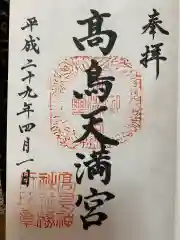 奉拝
高鳥天満宮
平成二十九年四月一日